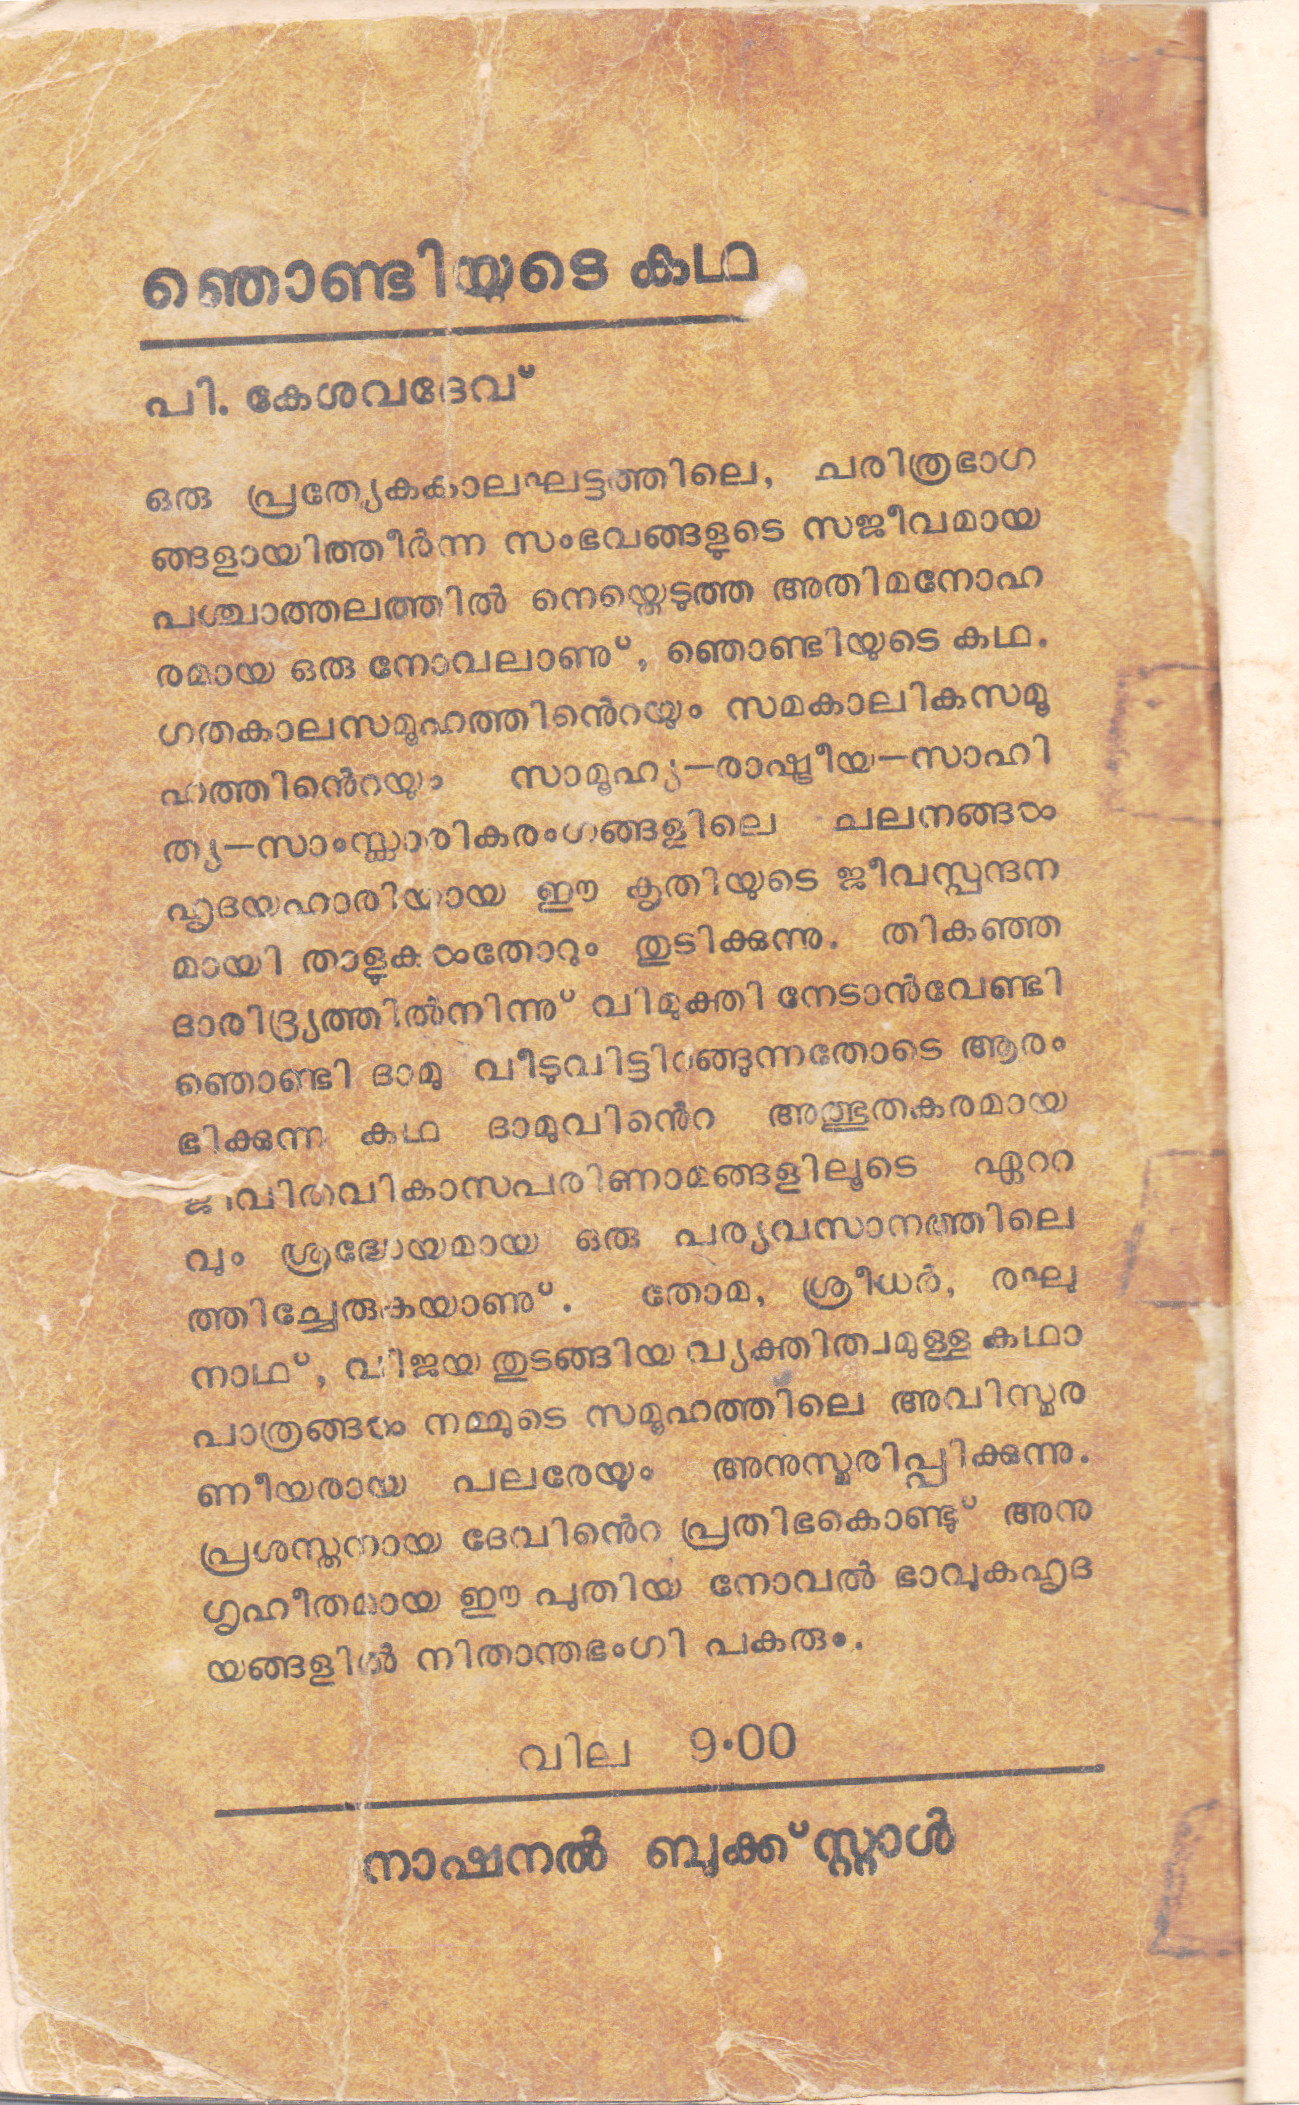 ഞൊണ്ടിയുടെ കഥ
പി. കേശവദേവ്
ഒരു പ്രത്യേകകാലഘട്ടത്തിലെ, ചരിത്രഭാഗ
ങ്ങളായിത്തീർന്ന സംഭവങ്ങളുടെ സജീവമായ
പശ്ചാത്തലത്തിൽ നെയ്തെടുത്ത അതിമനോഹ
രമായ ഒരു നോവലാണു്, ഞൊണ്ടിയുടെ കഥ.
ഗതകാലസമൂഹത്തിൻെറയും സമകാലികസമൂ
ഹത്തിൻെറയും സാമൂഹ്യ—രാഷ്ട്രീയ—സാഹി
ത്യ—സാംസ്കാരികരംഗങ്ങളിലെ ചലനങ്ങൾ
ഹൃദയഹാരിയായ ഈ കൃതിയുടെ ജീവസ്പന്ദന
മായി താളുകൾതോറും തുടിക്കുന്നു. തികഞ്ഞ
ദാരിദ്ര്യത്തിൽനിന്നു് വിമുക്തി നേടാൻവേണ്ടി
ഞൊണ്ടി ദാമു വീടുവിട്ടിറങ്ങുന്നതോടെ ആരം
ഭിക്കുന്ന കഥ ദാമുവിൻെറ അത്ഭുതകരമായ
ജീവിതവികാസപരിണാമങ്ങളിലൂടെ ഏററ
വും ശ്രദ്ധേയമായ ഒരു പര്യവസാനത്തിലെ
ത്തിച്ചേരുകയാണു്. തോമ, ശ്രീധർ, രഘു
നാഥ്, വിജയ തുടങ്ങിയ വ്യക്തിത്വമുള്ള കഥാ
പാത്രങ്ങൾ നമ്മുടെ സമൂഹത്തിലെ അവിസ്മര
ണീയരായ പലരേയും അനുസ്മരിപ്പിക്കുന്നു.
പ്രശസ്തനായ ദേവിൻെറ പ്രതിഭകൊണ്ടു് അനു
ഗൃഹീതമായ ഈ പുതിയ നോവൽ ഭാവുകഹൃദ
യങ്ങളിൽ നിതാന്തഭംഗി പകരും.
വില 9·00
നാഷനൽ ബുക്ക്സ്റ്റാൾ